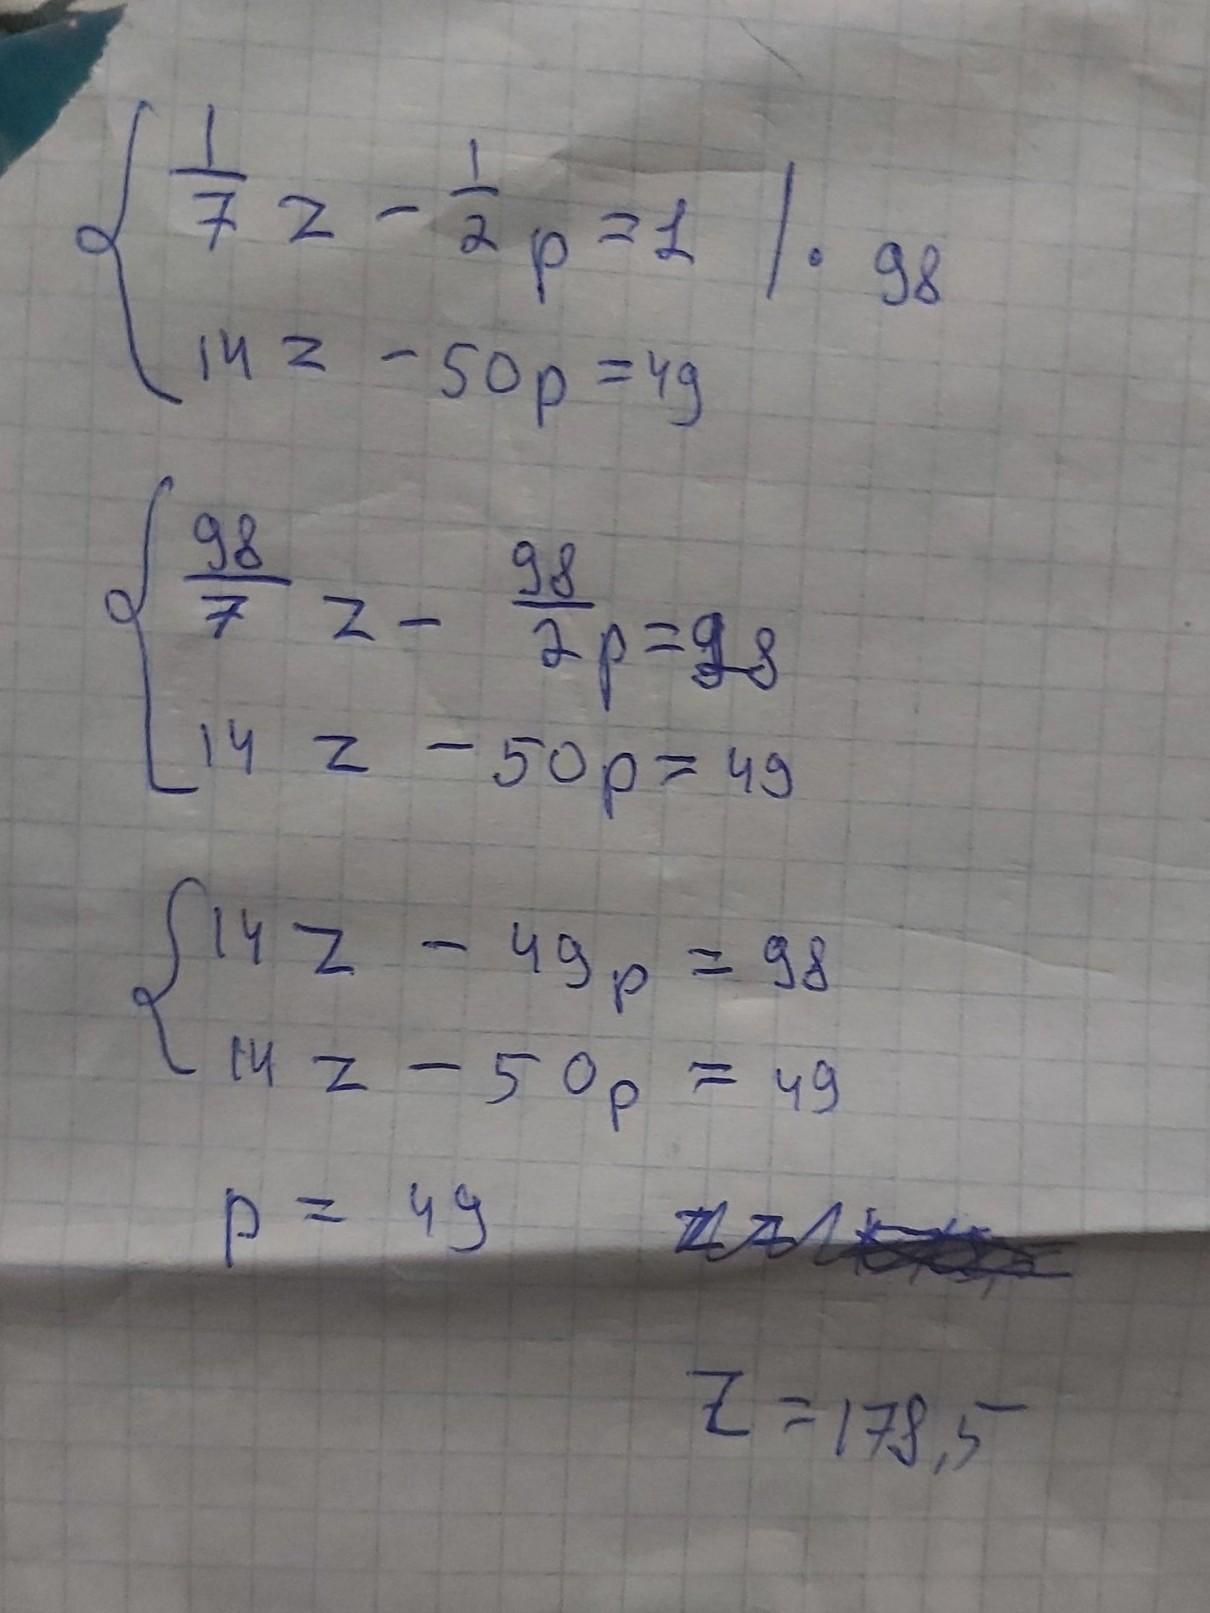 1/7 z - 1/2 p = 1 / · 98
14 z - 50p = 49
98/7 z - 98/2 p = 98
14 z - 50p = 49
14 z - 49p = 98
14 z - 50p = 49
p = 49
z = 178,5